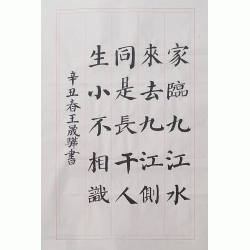 家臨九江水
來去九江側
同是長干人
生小不相識
辛丑春王晟驊書